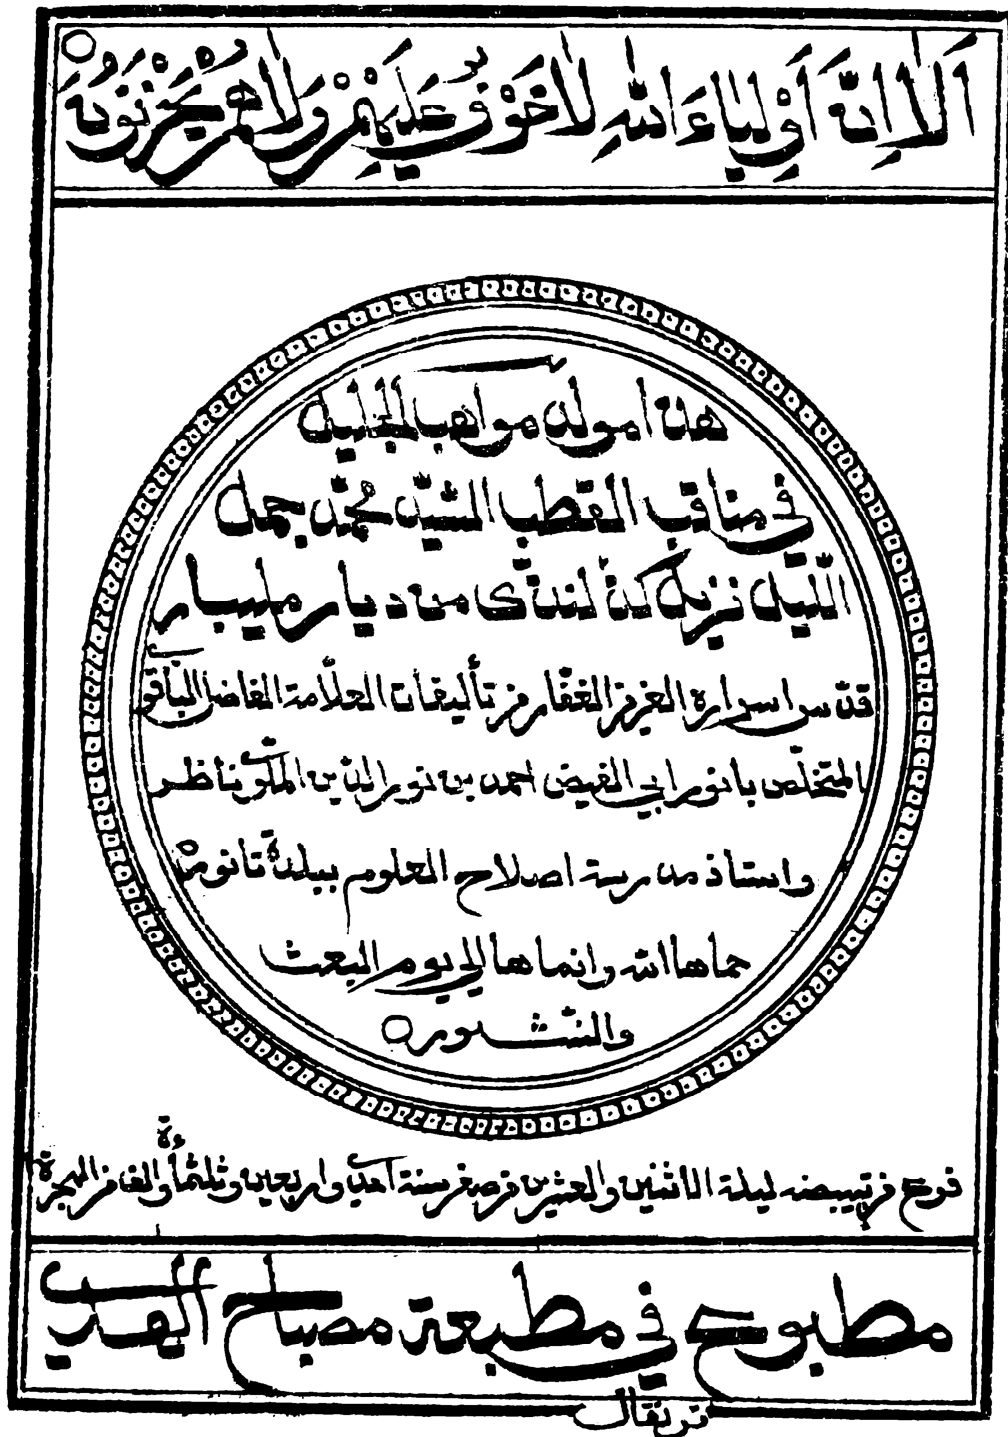 اَلَا اِنَّ اَوْلِيَاءَ اللّٰهِ لَا خَوْفٌ عَلَيْهِمْ وَلَا هُمْ يَحْزَنُوْنَ
هذا مولد مواهب الجليل
في مناقب القطب السيد محمد جمل
الليل نزيل كذلندى من ديار مليبار
قدس اسراره العزيز الغفار من تأليفات العلامة الفاضل الباقوى
المتخلص بانور ابي الفيض احمد بن نور الدين الملوى ناظر
واستاذ مدرسة اصلاح العلوم ببلدة تانور
حماها الله وانماها الى يوم البعث
والنشور
فرغ من تبييضه ليلة الاثنين والعشرين من صفر سنة احدى واربعين وثلثمأة والف من الهجرة
مطبوع في مطبعة مصباح الهدى
ترنقال